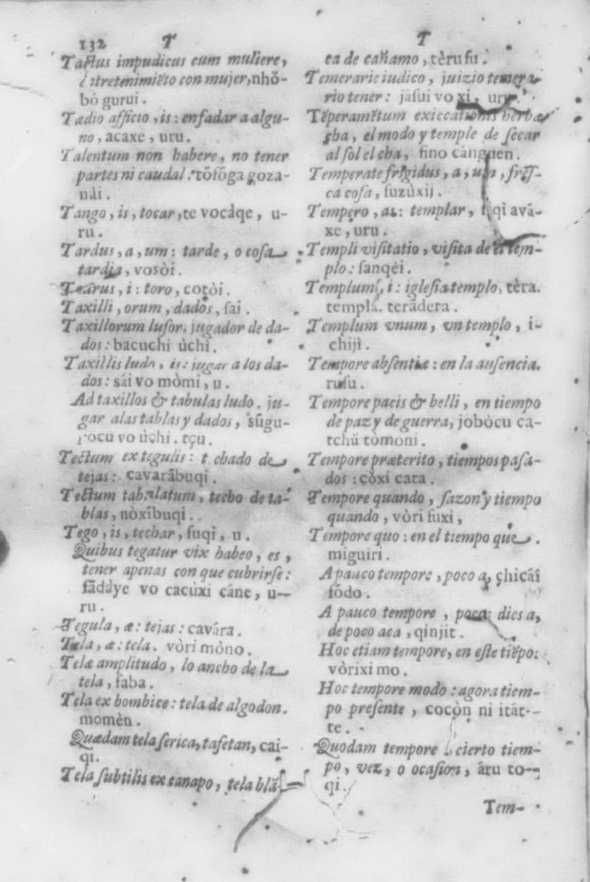 132 T
Tactus impudicus cum muliere,
ẽtretenimiẽto con mujer, nhõ-
bò gurui.
Tædio afficio, is: enfadar a algu-
no, acaxe, uru.
Talentum non habere, no tener
partes ni caudal: tõsõga goza-
nài.
Tango, is, tocar, te vocàqe, u-
ru.
Tardus, a, um: tarde, o cosa
tardia, vosòi.
Taurus, i: toro, cotòi.
Taxilli, orum, dados, sai.
Taxillorum lusor, jugador de da-
dos: bacuchi ùchi.
Taxillis ludo, is: jugar a los da-
dos: sài vo mòmi, u.
Ad taxillos & tabulas ludo, ju-
gar a las tablas y dados, sũgu-
rocu vo ùchi. tçu.
Tectum ex tegulis: techado de
tejas: cavarãbuqi.
Tectum tabulatum, techo de ta-
blas, nòxĩbuqi.
Tego, is, techar, fuqi, u.
Quibus tegatur vix habeo, es,
tener apenas con que cubrirse:
fadàye vo cacùxi càne, u-
ru.
Tegula, æ: tejas: cavàra.
Tela, æ: tela, vòri mòno.
Telæ amplitudo, lo ancho de la
tela, faba.
Tela ex bombice: tela de algodon.
momèn.
Quædam tela serica, tafetan, cai-
qi.
Tela subtilis ex canapo, tela blã-
T
ca de cañamo, tèru fu.
Temerarie iudico, juizio temera-
rio tener: jasui vo xi, uru.
Tẽperamẽtum exiccationis herba
cha, el modo y temple de secar
al sol el cha, fino cànguen.
Temperate frigidus, a, um, fres-
ca cosa, suzùxij.
Tempero, as: templar, fiqi avà-
xe, uru.
Templi visitatio, visita de el tem-
plo: sanqèi.
Templum, i: iglesia templo, tèra.
templa. teràdera.
Templum vnum, vn templo, i-
chiji.
Tempore absentiæ: en la ausencia.
rusu.
Tempore pacis & belli, en tiempo
de paz y de guerra, jòbòcu ca-
tchũ tomoni.
Tempore præterito, tiempos pasa-
dos: còxi cata.
Tempore quando, sazon y tiempo
quando, vòri fuxi,
Tempore quo: en el tiempo que.
miguiri.
A pauco tempore, poco a, chicài
fodo.
A pauco tempore, pocos dies a,
de poco aca, qinjit.
Hoc etiam tempore, en este tiẽpo:
vòrixi mo.
Hoc tempore modo: agora tiem-
po presente, cocòn ni itàt-
te.
Quodam tempore cierto tiem-
po, vez, o ocasion, àru to-
qi.
Tem-